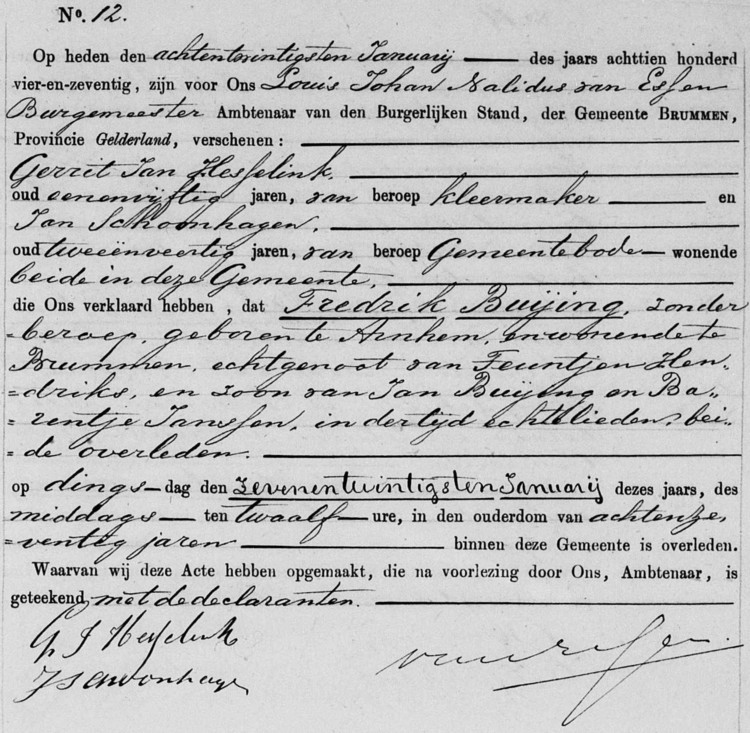 No. 12.
Op heden den achtentwintigsten Januarij des jaars achttien honderd
vier-en-zeventig, zijn voor Ons Louis Johan Nalidus van Essen
Burgemeester Ambtenaar van den Burgerlijken Stand, der Gemeente BRUMMEN,
Provincie Gelderland, verschenen:
Gerrit Jan Hesselink,
oud eenenvijftig jaren, van beroep kleermaker en
Jan Schoonhagen,
oud tweeënveertig jaren, van beroep Gemeentebode wonende
beide in deze Gemeente,
die Ons verklaard hebben, dat Fredrik Buijing, zonder
beroep, geboren te Arnhem, en wonende te
Brummen, echtgenoot van Teuntjen Hen-
driks, en zoon van Jan Buijing en Ba-
rentje Janssen, in der tijd echtelieden, bei-
de overleden.
op dings-dag den zevenentwintigsten Januarij dezes jaars, des
middags ten twaalf ure, in den ouderdom van achtenze-
ventig jaren binnen deze Gemeente is overleden.
Waarvan wij deze Acte hebben opgemaakt, die na voorlezing door Ons, Ambtenaar, is
geteekend met de declaranten.
G J Hesselink
J Schoonhagen
van Essen.